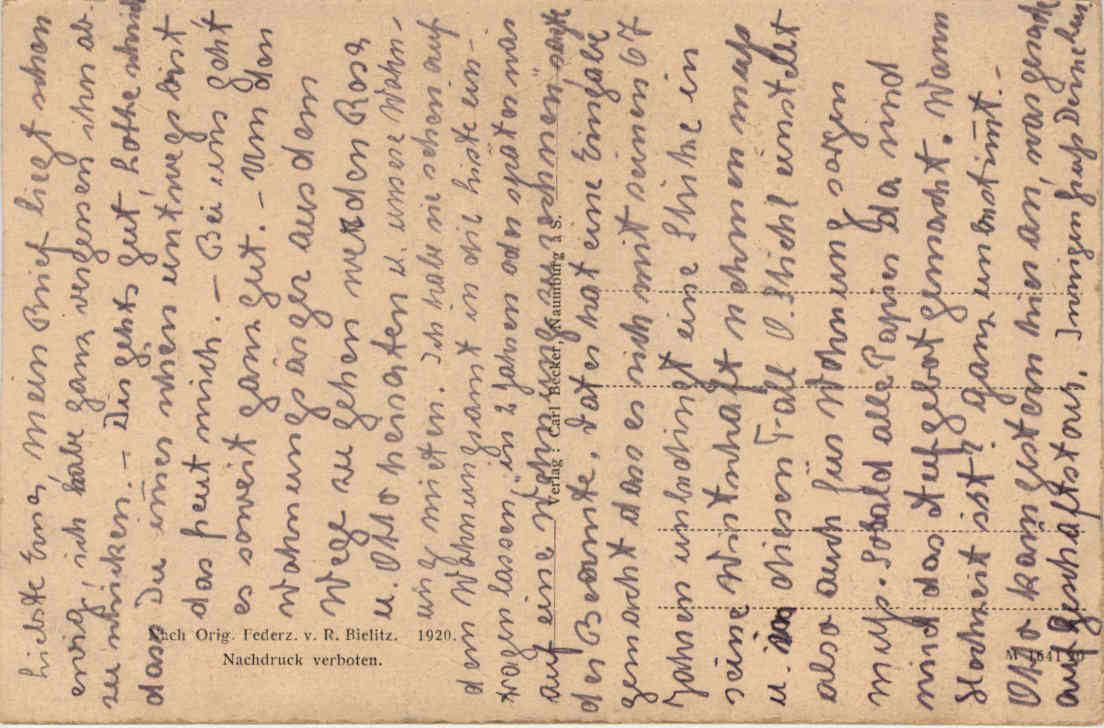 Liebste Erna, mein Brief liegt schon
ewig, ich habe ganz vergessen ihn ab-
zuschicken. – Dir gehts gut, Lotte schrieb
dass Du immer schon unterwegs bist
das freut mich. – Bei uns geht
es soweit ganz gut. – Um den
Wohnungsjäger aus dem
Wege zu gehen werden Rosa
u. Otto heiraten u. unsere Wohn-
ung mieten. Ich habe sie schon auf
dem Wohnungsamt in die Liste ein-
tragen lassen, in 2 Jahren oder später mal
auf eine Wohnung zu rechnen, sagte
der Beamte, Vater hat eine Eingabe
gemacht dass er sich mit seinen 67
Jahren unbedingt eine Stütze in
seine Wirtschaft nehmen muss
u. in diesen Fall O. Stichl einstellt
also auch für Wohnung sorgen
muss. Sobald alle Papier da sind
wird das Aufgebot gemacht. Wann
Hochzeit ist? ganz unbestimmt. –
Otto kam gestern hier an, war gerade
auf Geschäftstour. Innigen Gruß Deine
Nach Orig. Federz. v. R. Bielitz. 1920.
Nachdruck verboten.
Verlag: Carl Becker, Naumburg a S.